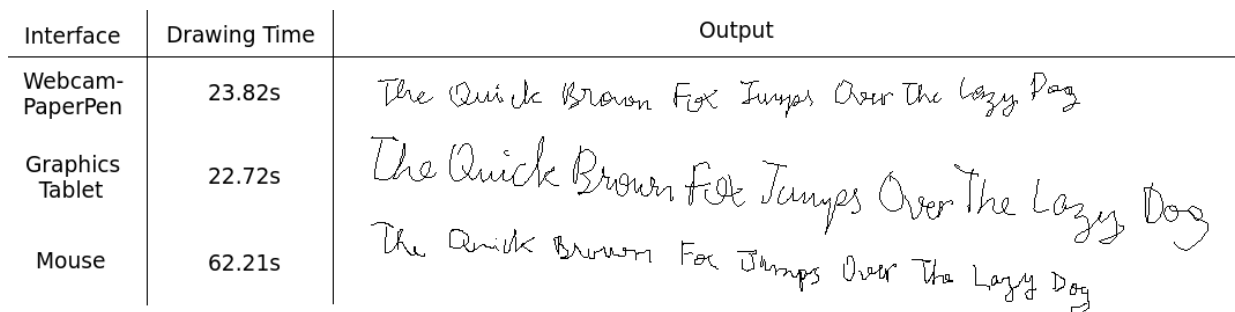 Interface Drawing Time Output
Webcam-
PaperPen 23.82s The Quick Brown Fox Jumps Over The Lazy Dog
Graphics
Tablet 22.72s The Quick Brown Fox Jumps Over The Lazy Dog
Mouse 62.21s The Quick Brown Fox Jumps Over The Lazy Dog